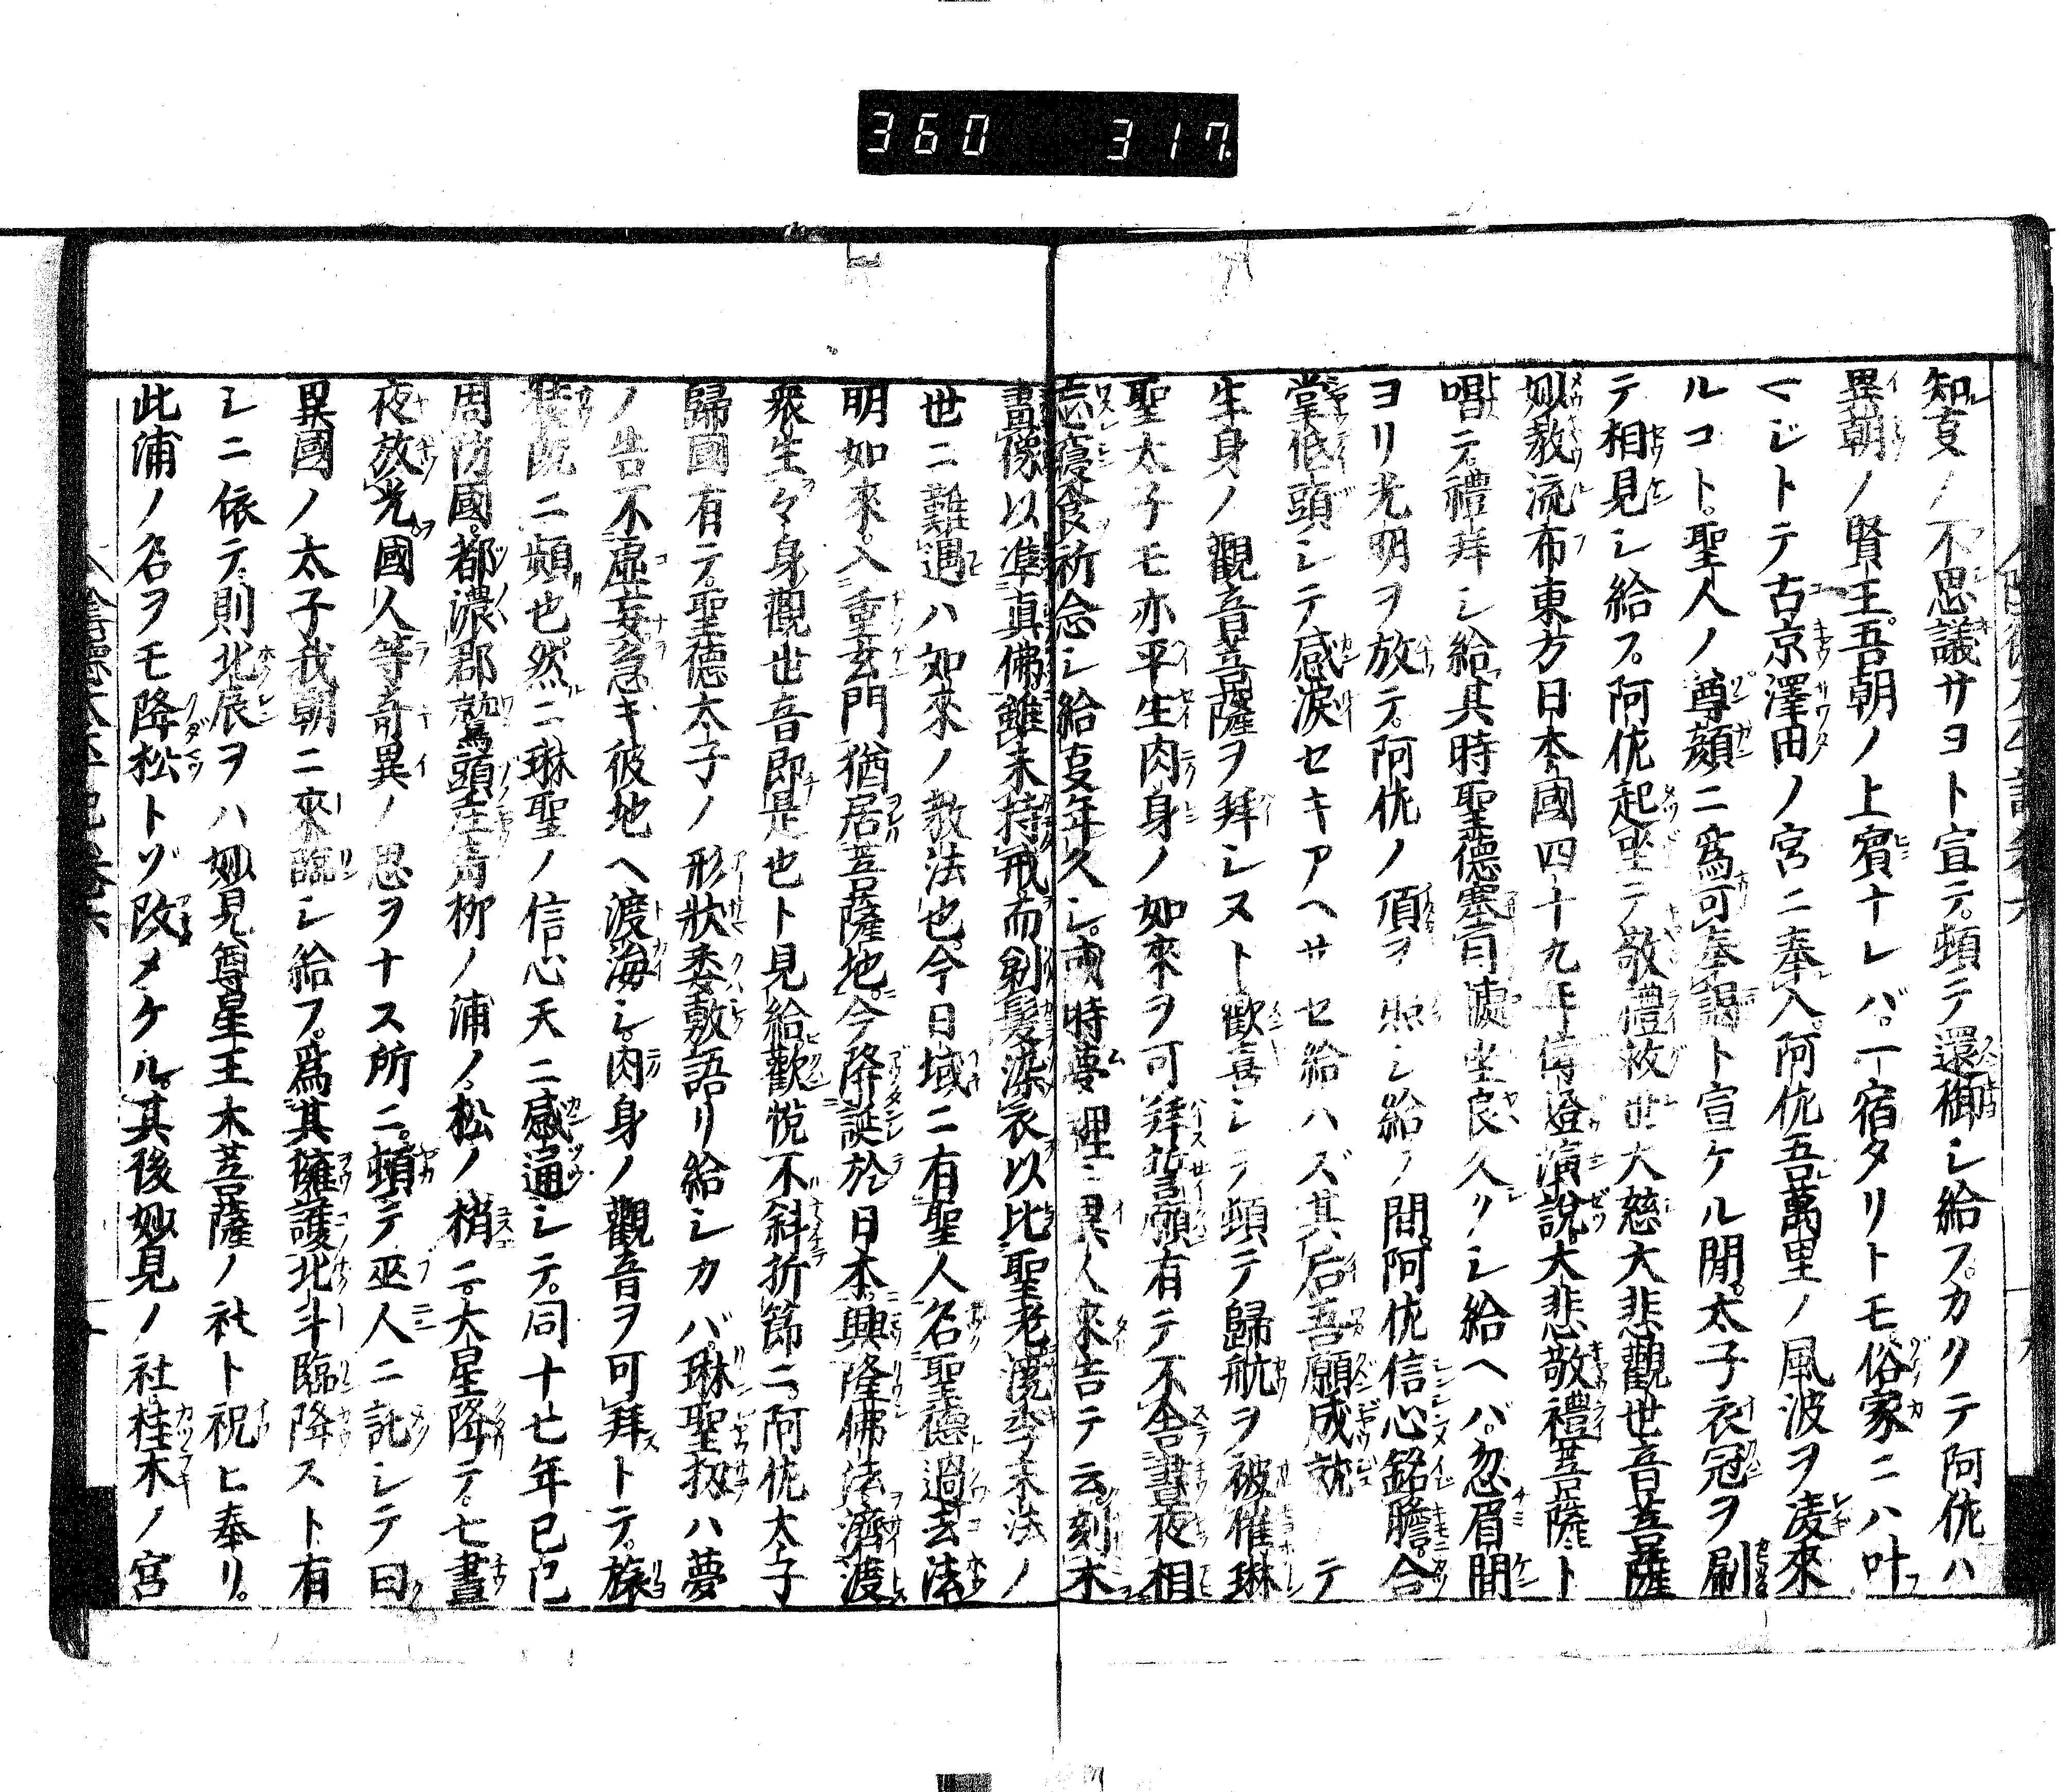 360 317
知ル夏ノ不思議サヨト宣テ。頓テ還御シ給フ。カクテ阿佐ハ
異朝ノ賢王。吾朝ノ上賓ナレバ。一宿タリトモ俗家ニハ叶
マジトテ古京澤田ノ宮ニ奉入。阿佐吾萬里ノ風波ヲ凌來
ルコト。聖人ノ尊顔ニ爲可奉謁ト宣ケル間。太子衣冠ヲ刷
テ相見シ給フ。阿佐起坐テ敬禮救世大慈大悲觀世音菩薩
妙教流布東方日本國四十九年傳燈演說大悲敬禮菩薩ト
唱テ禮拜シ給。其時聖德塞目坐良久フシ給ヘバ。忽眉間
ヨリ光明ヲ放テ。阿佐ノ頂ヲ照シ給フ間。阿佐信心銘膽。合
掌低頭シテ感淚セキアヘサセ給ハズ其后吾願成就テ
生身ノ觀音菩薩ヲ拜シヌト歡喜シテ頓テ歸航ヲ被催。琳
聖太子モ亦平生肉身ノ如來ヲ可拜誓願有テ不舍晝夜相
忘寢食祈念シ給夏年久シ。或時夢裡ニ異人來告テ云。刻木
畫像以準真佛。雖未持戒而剃髮染衣以比聖老。澆季末法ノ
世ニ難遇ハ如來ノ敎法也。今日域ニ有聖人名聖德過去法
明如來。入重玄門猶居菩薩地。今降誕於日本。興隆佛法濟渡
衆生々身觀世音即是也ト見給歡悅不斜折節ニ。阿佐太子
歸國有テ。聖德太子ノ形狀委敷語リ給シカバ。琳聖扨ハ夢
ノ告不虛妄急キ彼地ヘ渡海シ。肉身ノ觀音ヲ可拜トテ。旅
裝既ニ頻也。然ニ琳聖ノ信心天ニ感通シテ。同十七年己巳
周防國。都濃郡鷲頭庄青柳ノ浦ノ。松ノ梢ニ。大星降テ。七晝
夜放光國人等奇異ノ思ヲナス所ニ。頓テ巫人ニ託シテ曰
異國ノ太子我朝ニ來臨シ給フ。爲其擁護北斗臨降スト有
シニ依テ。則北辰ヲハ妙見尊星王木菩薩ノ社ト祝ヒ奉リ。
此浦ノ名ヲモ降松トゾ改メケル。其後妙見ノ社。桂木ノ宮